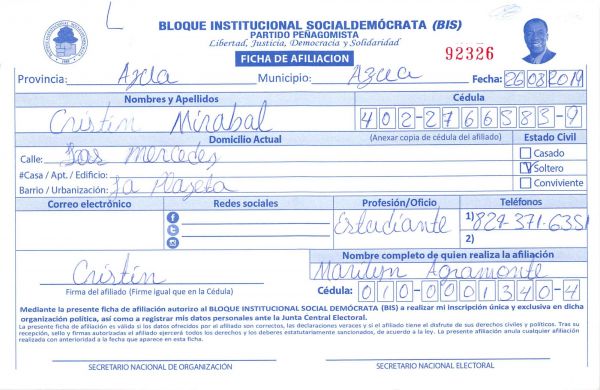 BLOQUE INSTITUCIONAL SOCIALDEMÓCRATA (BIS)
PARTIDO PEÑAGOMISTA
Libertad, Justicia, Democracia y Solidaridad
FICHA DE AFILIACION
92326
Provincia: Azua Municipio: Azua Fecha: 26/03/2019
Nombres y Apellidos Cédula
Cristin Mirabal 402-2766583-9
Domicilio Actual (Anexar copia de cédula del afiliado) Estado Civil
Calle: Las Mercedes Casado
#Casa / Apt. / Edificio: Soltero
Barrio / Urbanización: La Placeta Conviviente
Correo electrónico Redes sociales Profesión/Oficio Teléfonos
Estudiante 1) 829-371-6351
2)
Nombre completo de quien realiza la afiliación
Cristin Marilyn Agramonte
Firma del afiliado (Firme igual que en la Cédula) Cédula: 010-0001340-4
Mediante la presente ficha de afiliación autorizo al BLOQUE INSTITUCIONAL SOCIAL DEMÓCRATA (BIS) a realizar mi inscripción única y exclusiva en dicha
organización política, así como a registrar mis datos personales ante la Junta Central Electoral.
La presente ficha de afiliación es válida si los datos ofrecidos por el afiliado son correctos, las declaraciones veraces y si el afiliado tiene el disfrute de sus derechos civiles y políticos. Tras su
recepción, sello y firmas autorizadas el afiliado ejercerá todos los derechos y los deberes estatutariamente sancionados, de acuerdo a la ley. La presente afiliación anula cualquier afiliación
realizada con anterioridad a la fecha que aparece en esta ficha.
SECRETARIO NACIONAL DE ORGANIZACIÓN SECRETARIO NACIONAL ELECTORAL